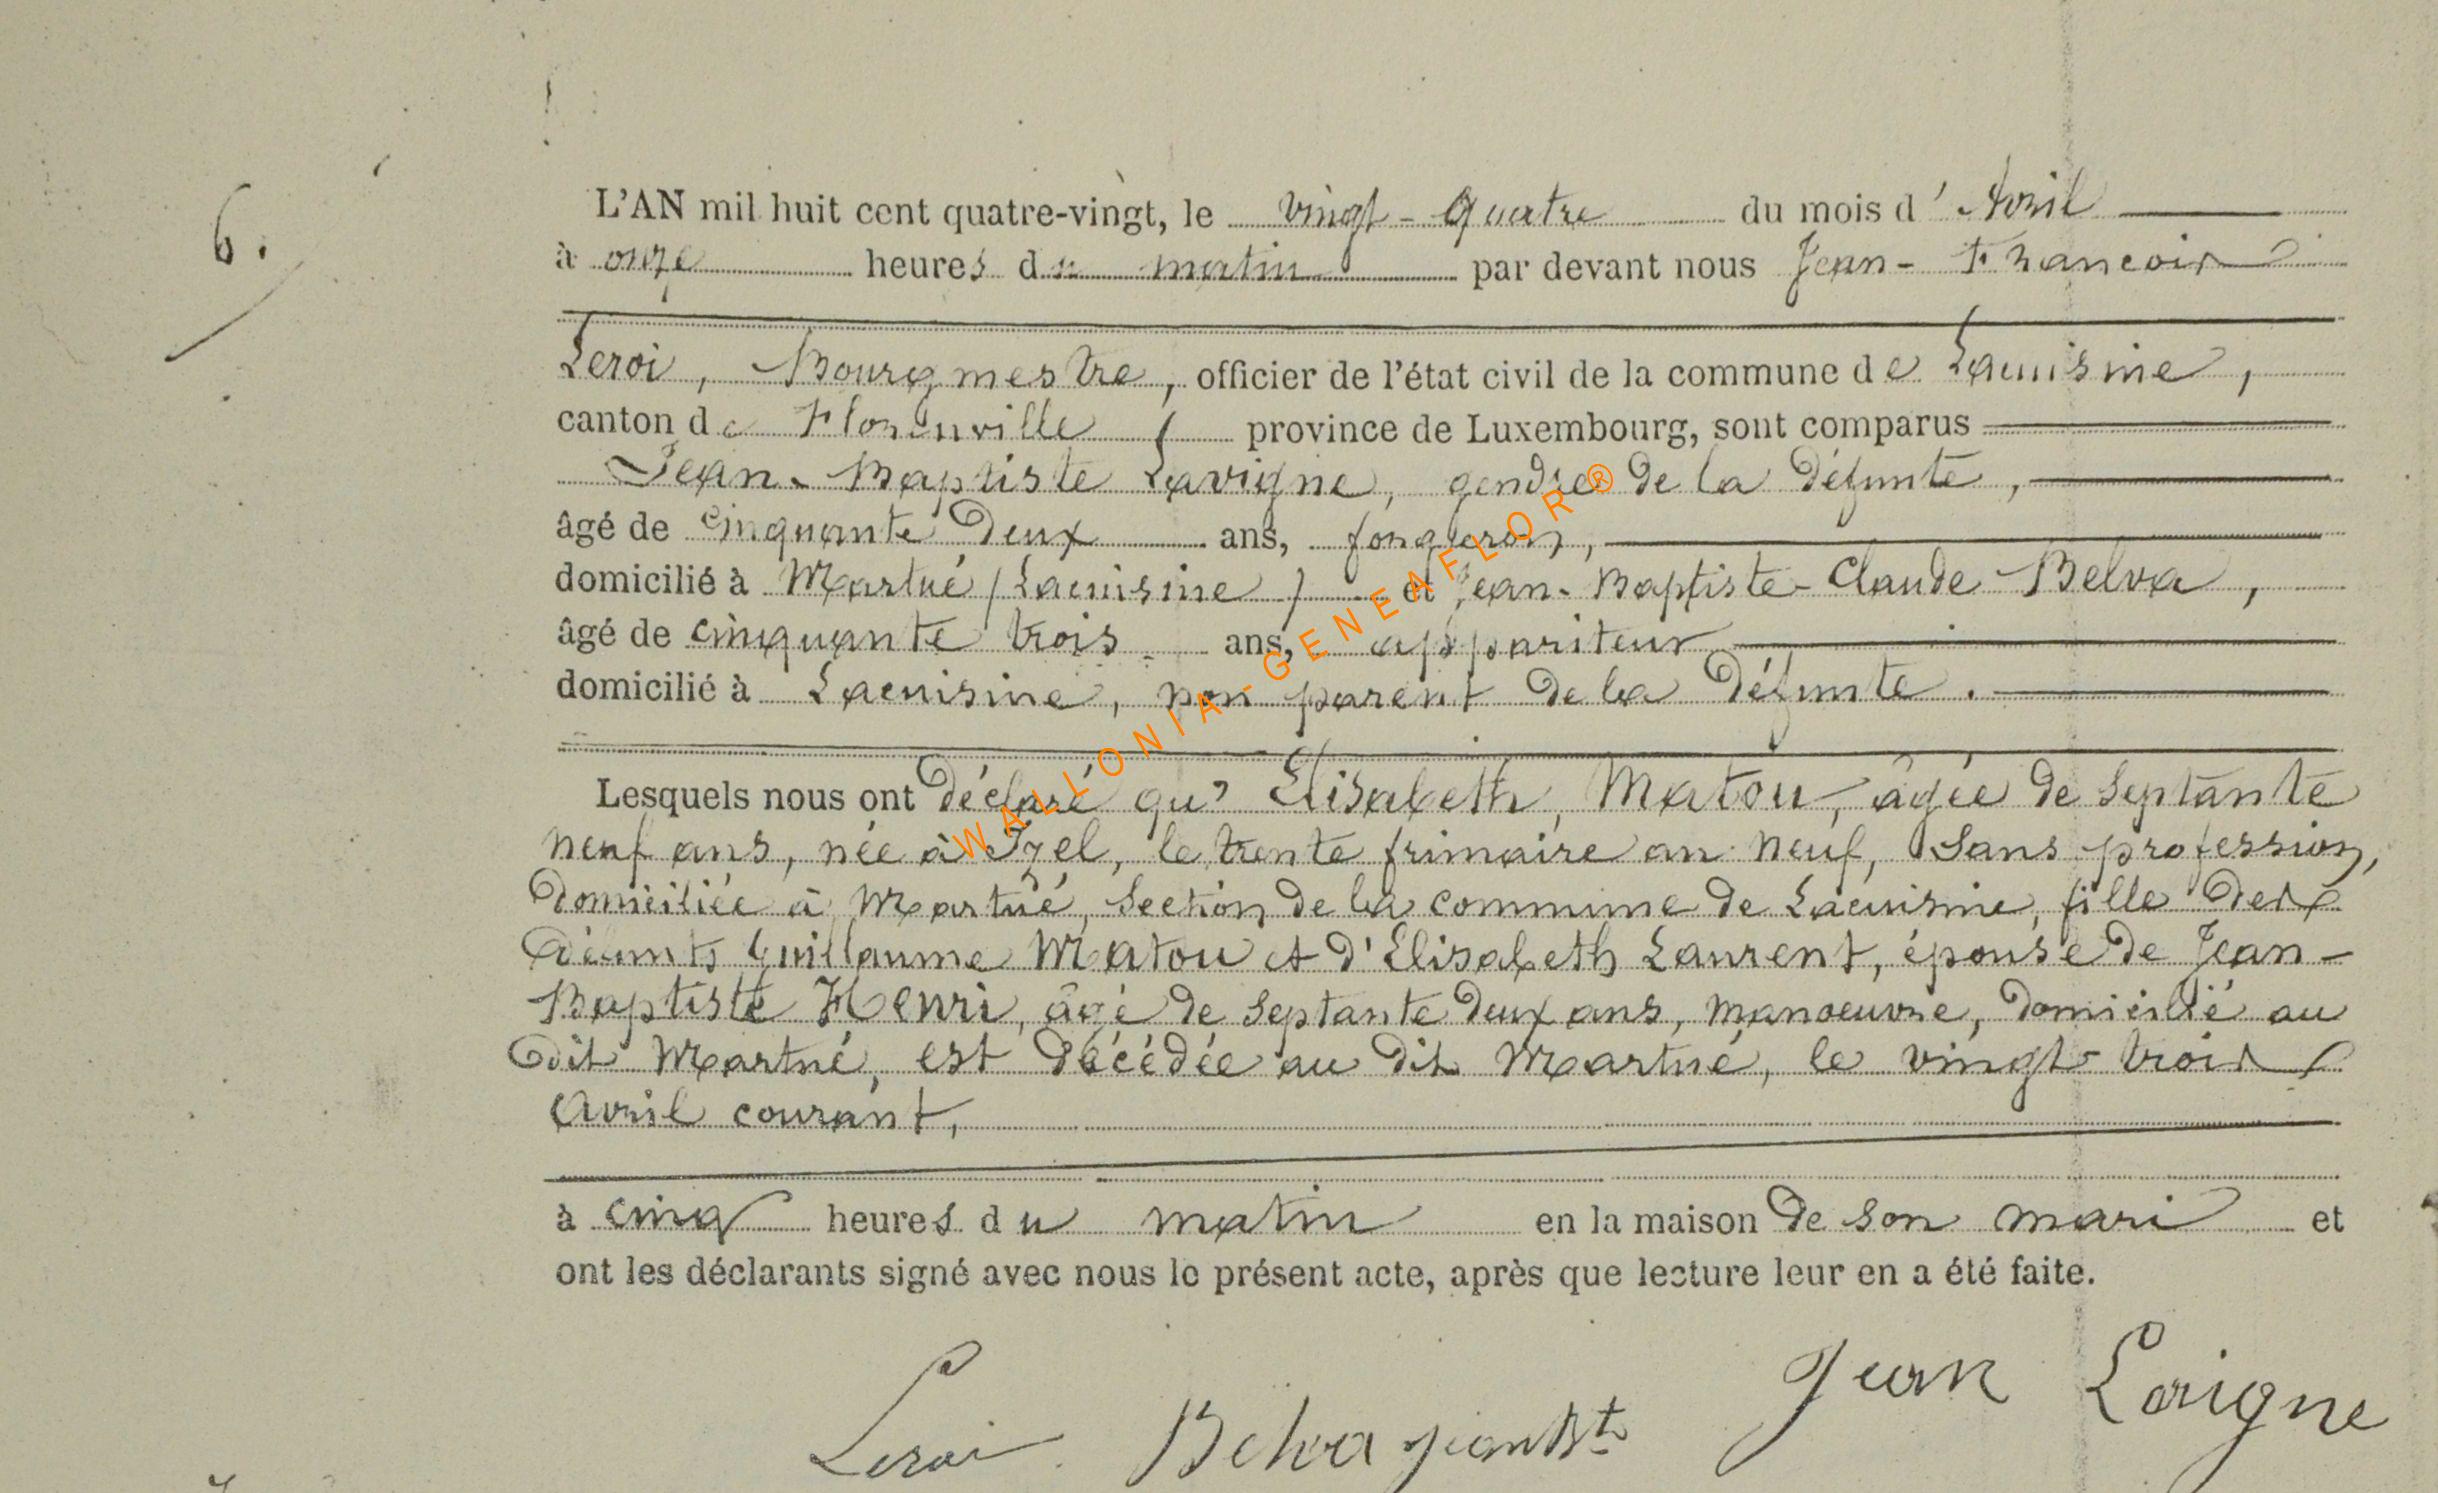 6.
L'AN mil huit cent quatre-vingt, le vingt-quatre du mois d'Avril
à onze heures du matin par devant nous Jean-Francois
Leroi, Bourgmestre, officier de l'état civil de la commune de Lacuisine,
canton de Florenville, province de Luxembourg, sont comparus
Jean-Baptiste Lavigne, gendre de la défunte,
âgé de cinquante deux ans, forgeron,
domicilié à Martué (Lacuisine) et Jean-Baptiste-Claude Belva,
âgé de cinquante trois ans, appariteur
domicilié à Lacuisine, non parent de la défunte.
Lesquels nous ont déclaré qu'Elisabeth, Matou, âgée de septante
neuf ans, née à Izel, le trente frimaire an neuf, sans profession,
domiciliée à Martué, section de la commune de Lacuisine, fille des
défunts Guillaume Matou et d'Elisabeth Laurent, épouse de Jean-
Baptiste Henri, âgé de septante deux ans, manoeuvre, domicilié au
dit Martué, est décédée au dit Martué, le vingt-trois
Avril courant,
à cinq heures du matin en la maison de son mari et
ont les déclarants signé avec nous le présent acte, après que lecture leur en a été faite.
Leroi Belva jean Bte Jean Lavigne
WALLONIA-GENEAFLOR®